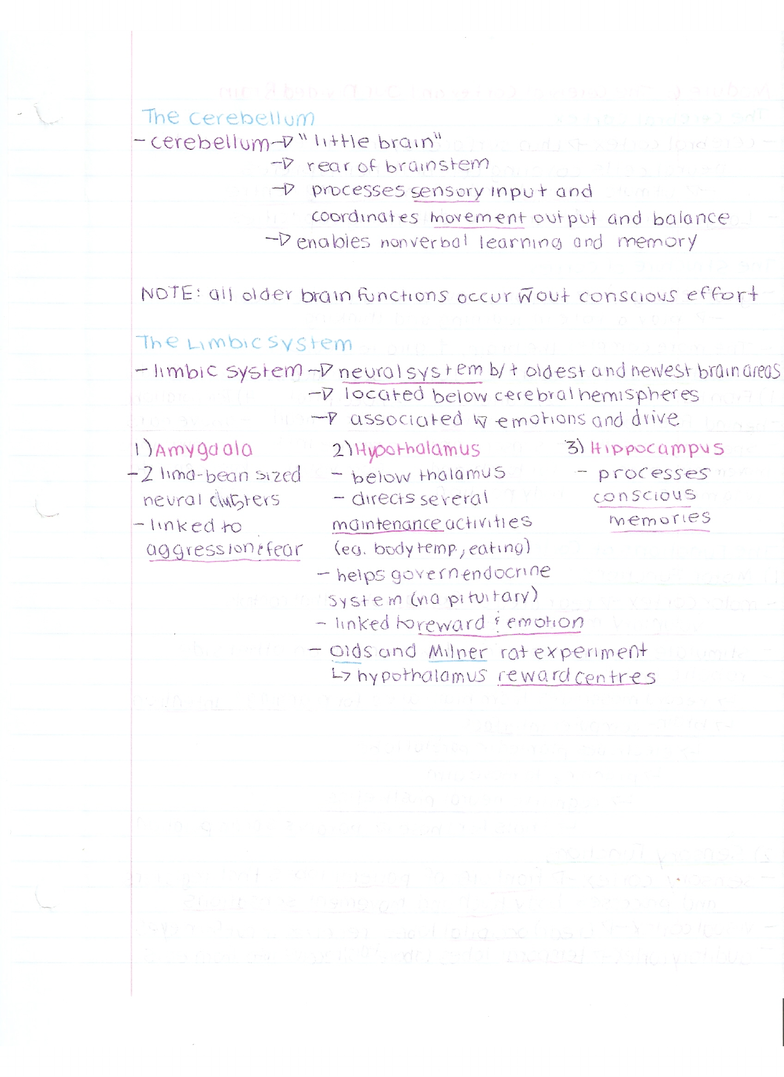 The Cerebellum
- cerebellum → "little brain"
→ rear of brainstem
→ processes sensory input and
coordinates movement output and balance
→ enables nonverbal learning and memory
NOTE: all older brain functions occur w̄out conscious effort
The Limbic System
- limbic system → neural system b/t oldest and newest brain areas
→ located below cerebral hemispheres
→ associated w̄ emotions and drive
1) Amygdala
- 2 lima-bean sized
neural clusters
- linked to
aggression & fear
2) Hypothalamus
- below thalamus
- directs several
maintenance activities
(eg. body temp, eating)
- helps govern endocrine
system (via pituitary)
- linked to reward & emotion
- Olds and Milner rat experiment
↳ hypothalamus reward centres
3) Hippocampus
- processes
conscious
memories